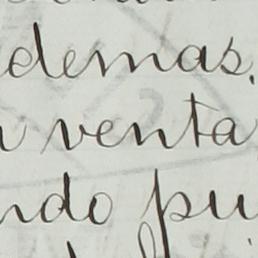 demas.
venta
ndo pu